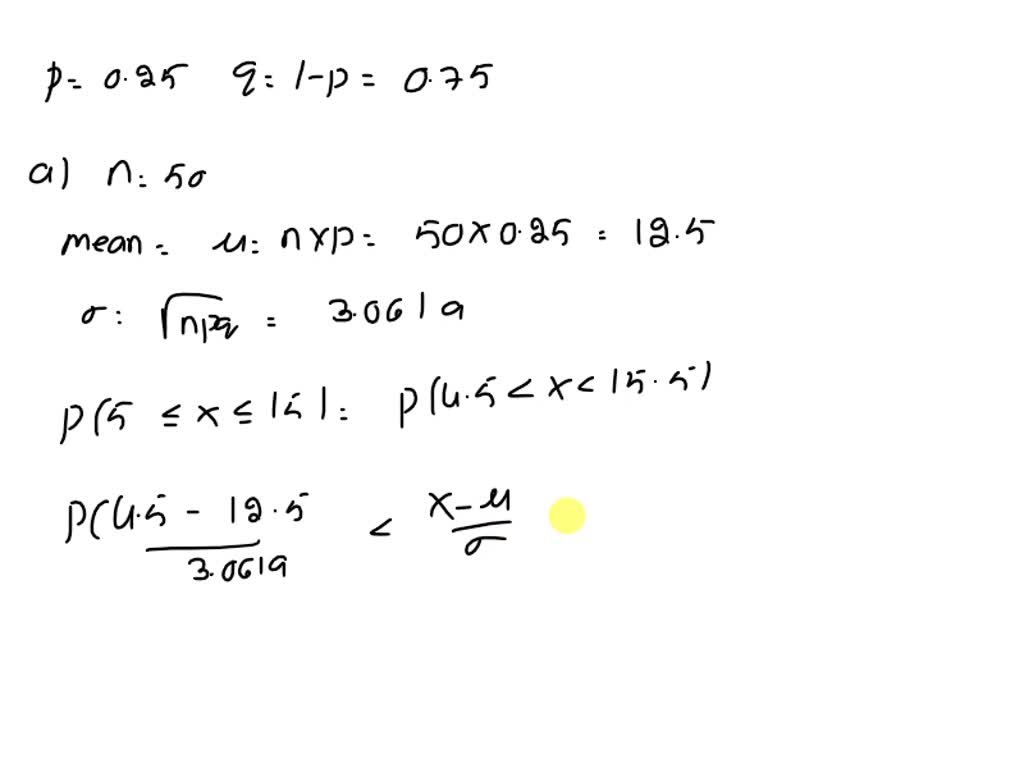 p= 0.25 q= 1-p= 0.75
a) n= 50
mean= μ= n×p= 50×0.25 = 12.5
σ: √npq = 3.0619
p(5 ≤ x ≤ 15)= p(4.5 < x < 15.5)
p(4.5 - 12.5 / 3.0619 < x-μ / σ